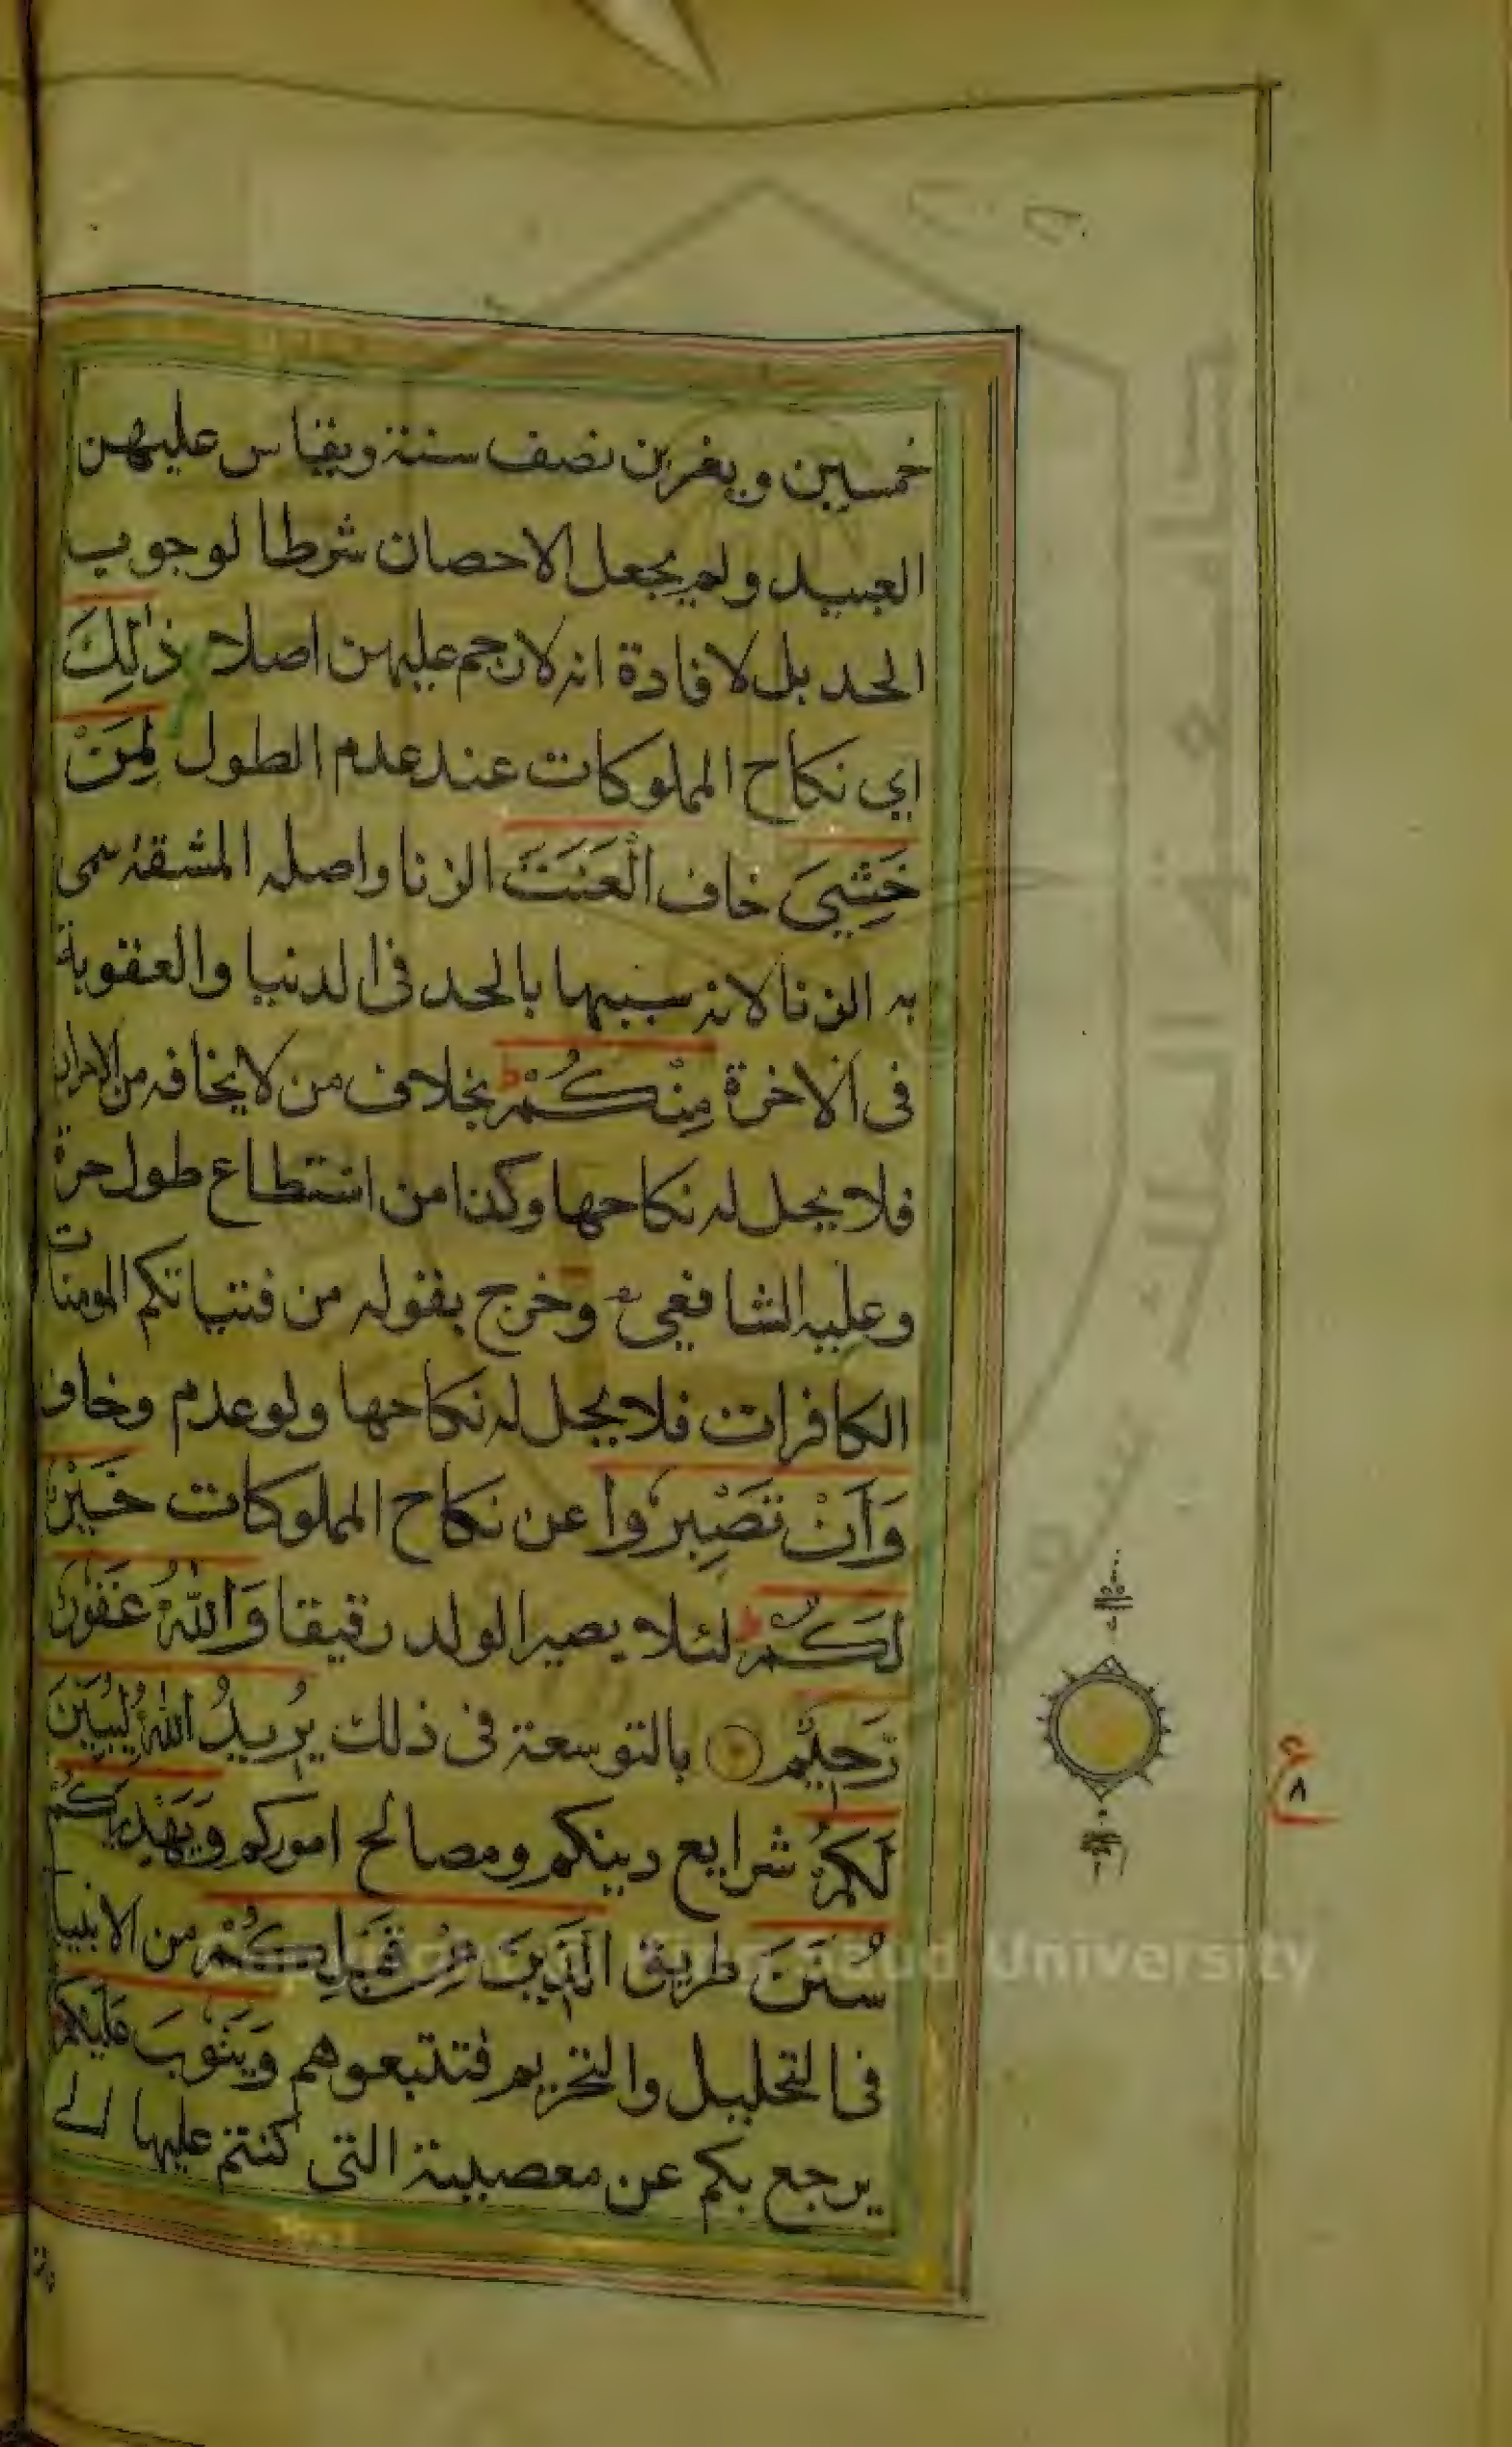 خمسين ويغربن نصف سنة ويقاس عليهن
العبيد ولم يجعل الاحصان شرطا لوجوب
الحد بل لافادة انه لارجم عليهن اصلا ذٰلِكَ
اي نكاح المملوكات عند عدم الطول لِمَنْ
خَشِيَ خاف الْعَنَتَ الزنا واصله المشقة سمى
به الزنا لانه سببها بالحد فى الدنيا والعقوبة
فى الاخرة مِنْكُمْ ط بخلاف من لا يخافه من الاحرار
فلا يحل له نكاحها وكذا من استطاع طول حرة
وعليه الشافعي وخرج بقوله من فتياتكم المومنات
الكافرات فلا يحل له نكاحها ولو عدم وخاف
وَاَنْ تَصْبِرُوا عن نكاح المملوكات خَيْرٌ
لَكُمْ ط لئلا يصير الولد رقيقا وَاللّٰهُ غَفُورٌ
رَّحِيْم بالتوسعة فى ذلك يُرِيدُ اللّٰهُ لِيُبَيِّنَ
لَكُمْ شرايع دينكم ومصالح اموركم وَيَهْدِيَكُمْ
سُنَنَ طريق الَّذِينَ مِنْ قَبْلِكُمْ من الانبيا
فى التحليل والتحريم فتتبعوهم وَيَتُوبَ عَلَيْكُمْ
يرجع بكم عن معصيته التى كنتم عليها الى
ع
٨
جامعة الملك سعود
King Saud University